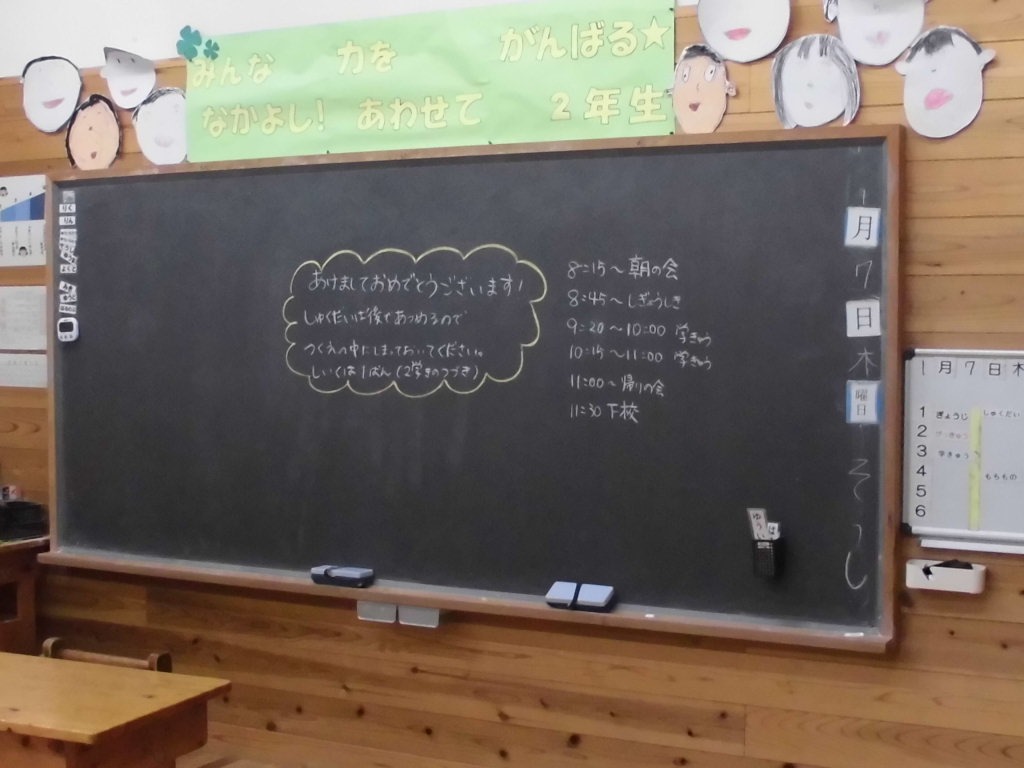 みんな 力を がんばる★
なかよし! あわせて 2年生
あけましておめでとうございます!
しゅくだいは後であつめるので
つくえの中にしまっておいてください。
しいくは1ぱん(2学きのつづき)
8:15～朝の会
8:45～しぎょうしき
9:20～10:00 学きゅう
10:15～11:00 学きゅう
11:00～帰りの会
11:30下校
1
月
7
日
木
曜日
そうじ
1月7日木
1 ぎょうじ しゅくだい
2
3 学きゅう
4 もちもの
5
6